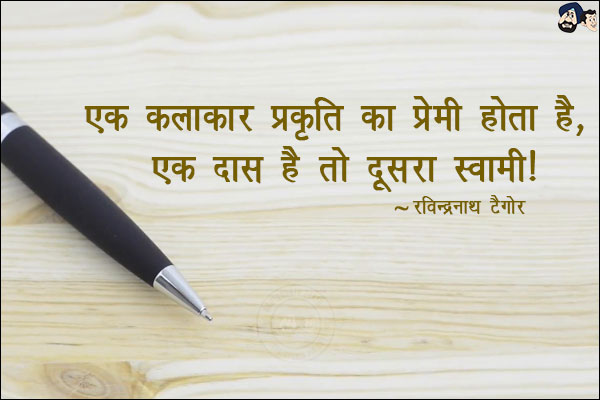 एक कलाकार प्रकृति का प्रेमी होता है,
एक दास है तो दूसरा स्वामी!
~ रविन्द्रनाथ टैगोर